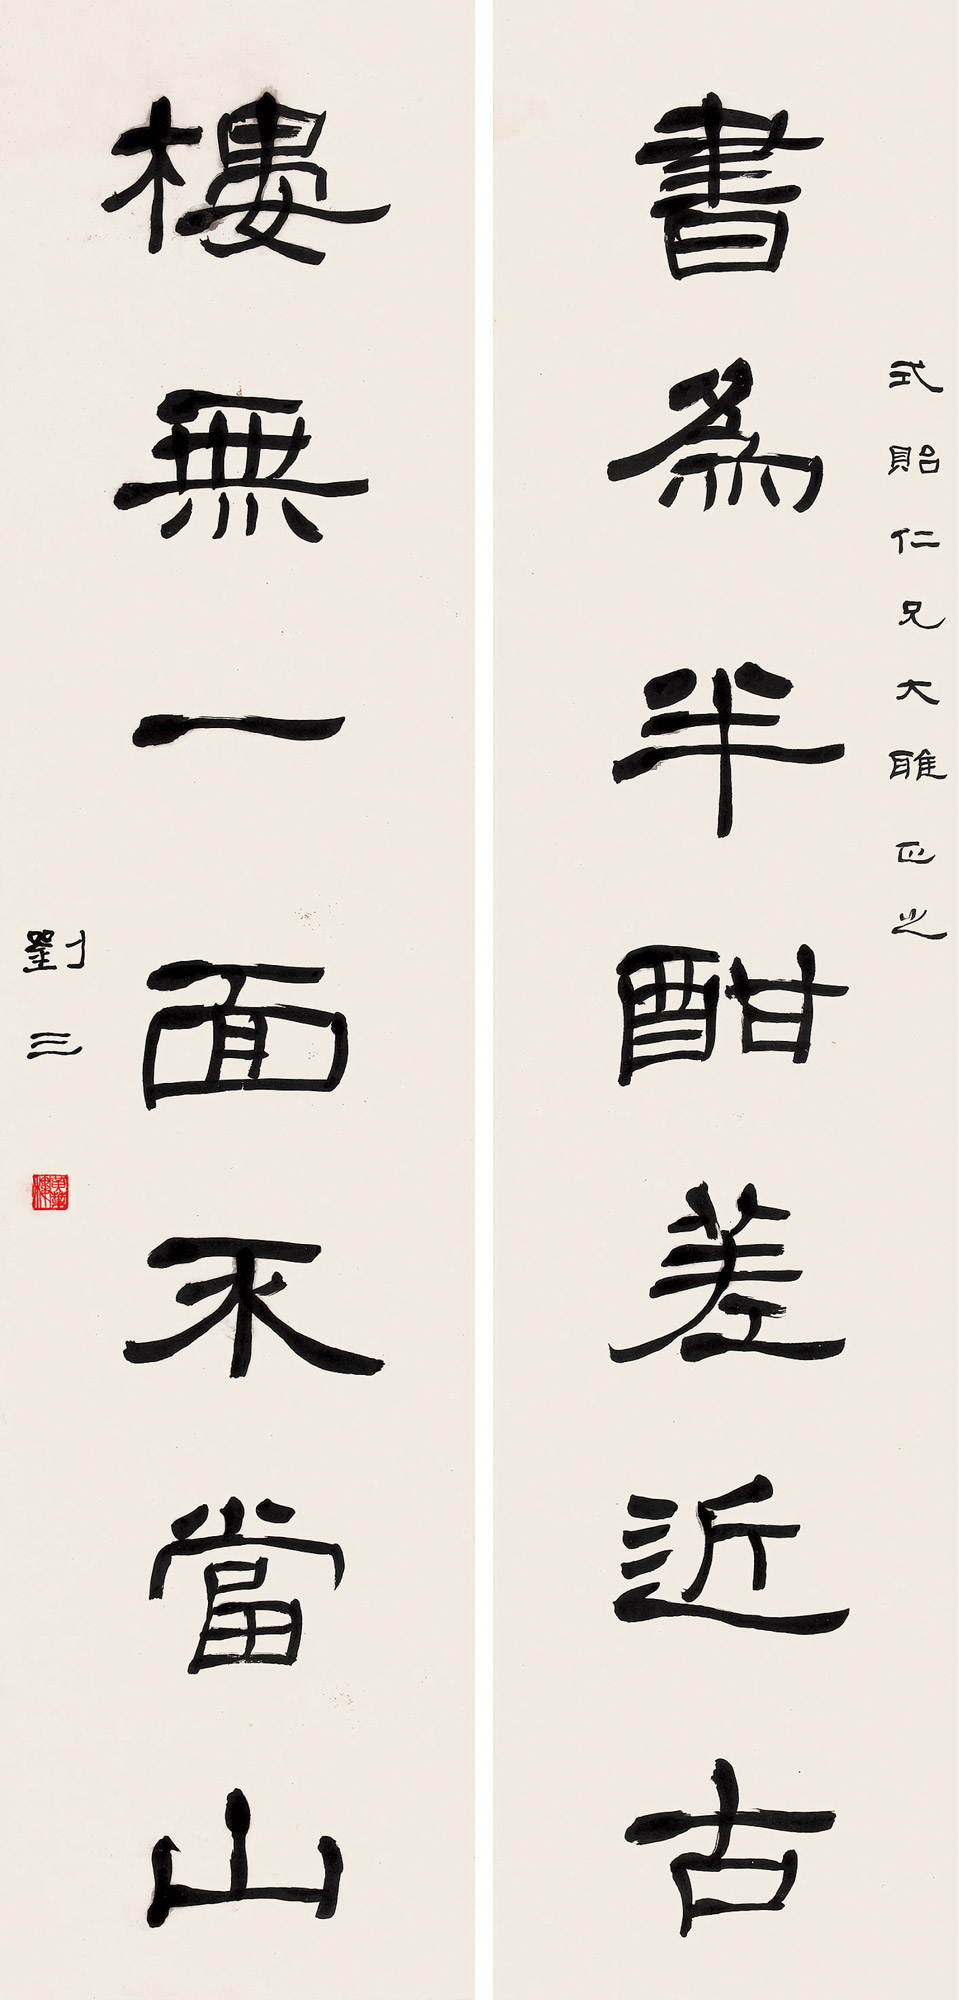 式貽仁兄大雅正之
書為半酣差近古
樓無一面不當山
劉三